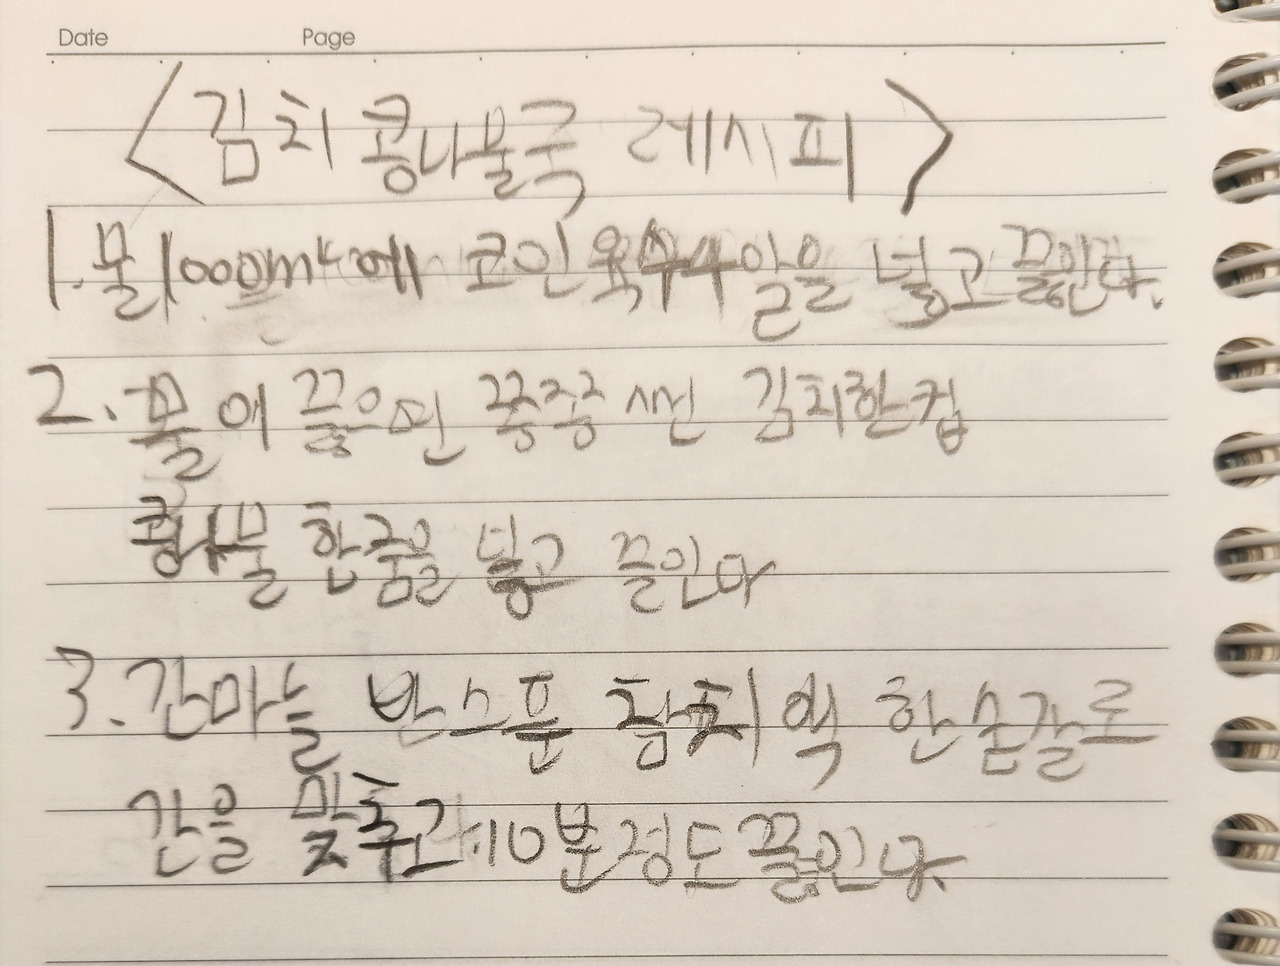 Date Page
<김치 콩나물국 레시피>
1. 물 1000ml에 코인 육수 4알을 넣고 끓인다.
2. 물이 끓으면 쫑쫑 썬 김치한컵
콩나물 한줌을 넣고 끌인다
3. 간마늘 반스푼 참치 액 한 숟갈로
간을 맞추고 10분 정도 끓인다.